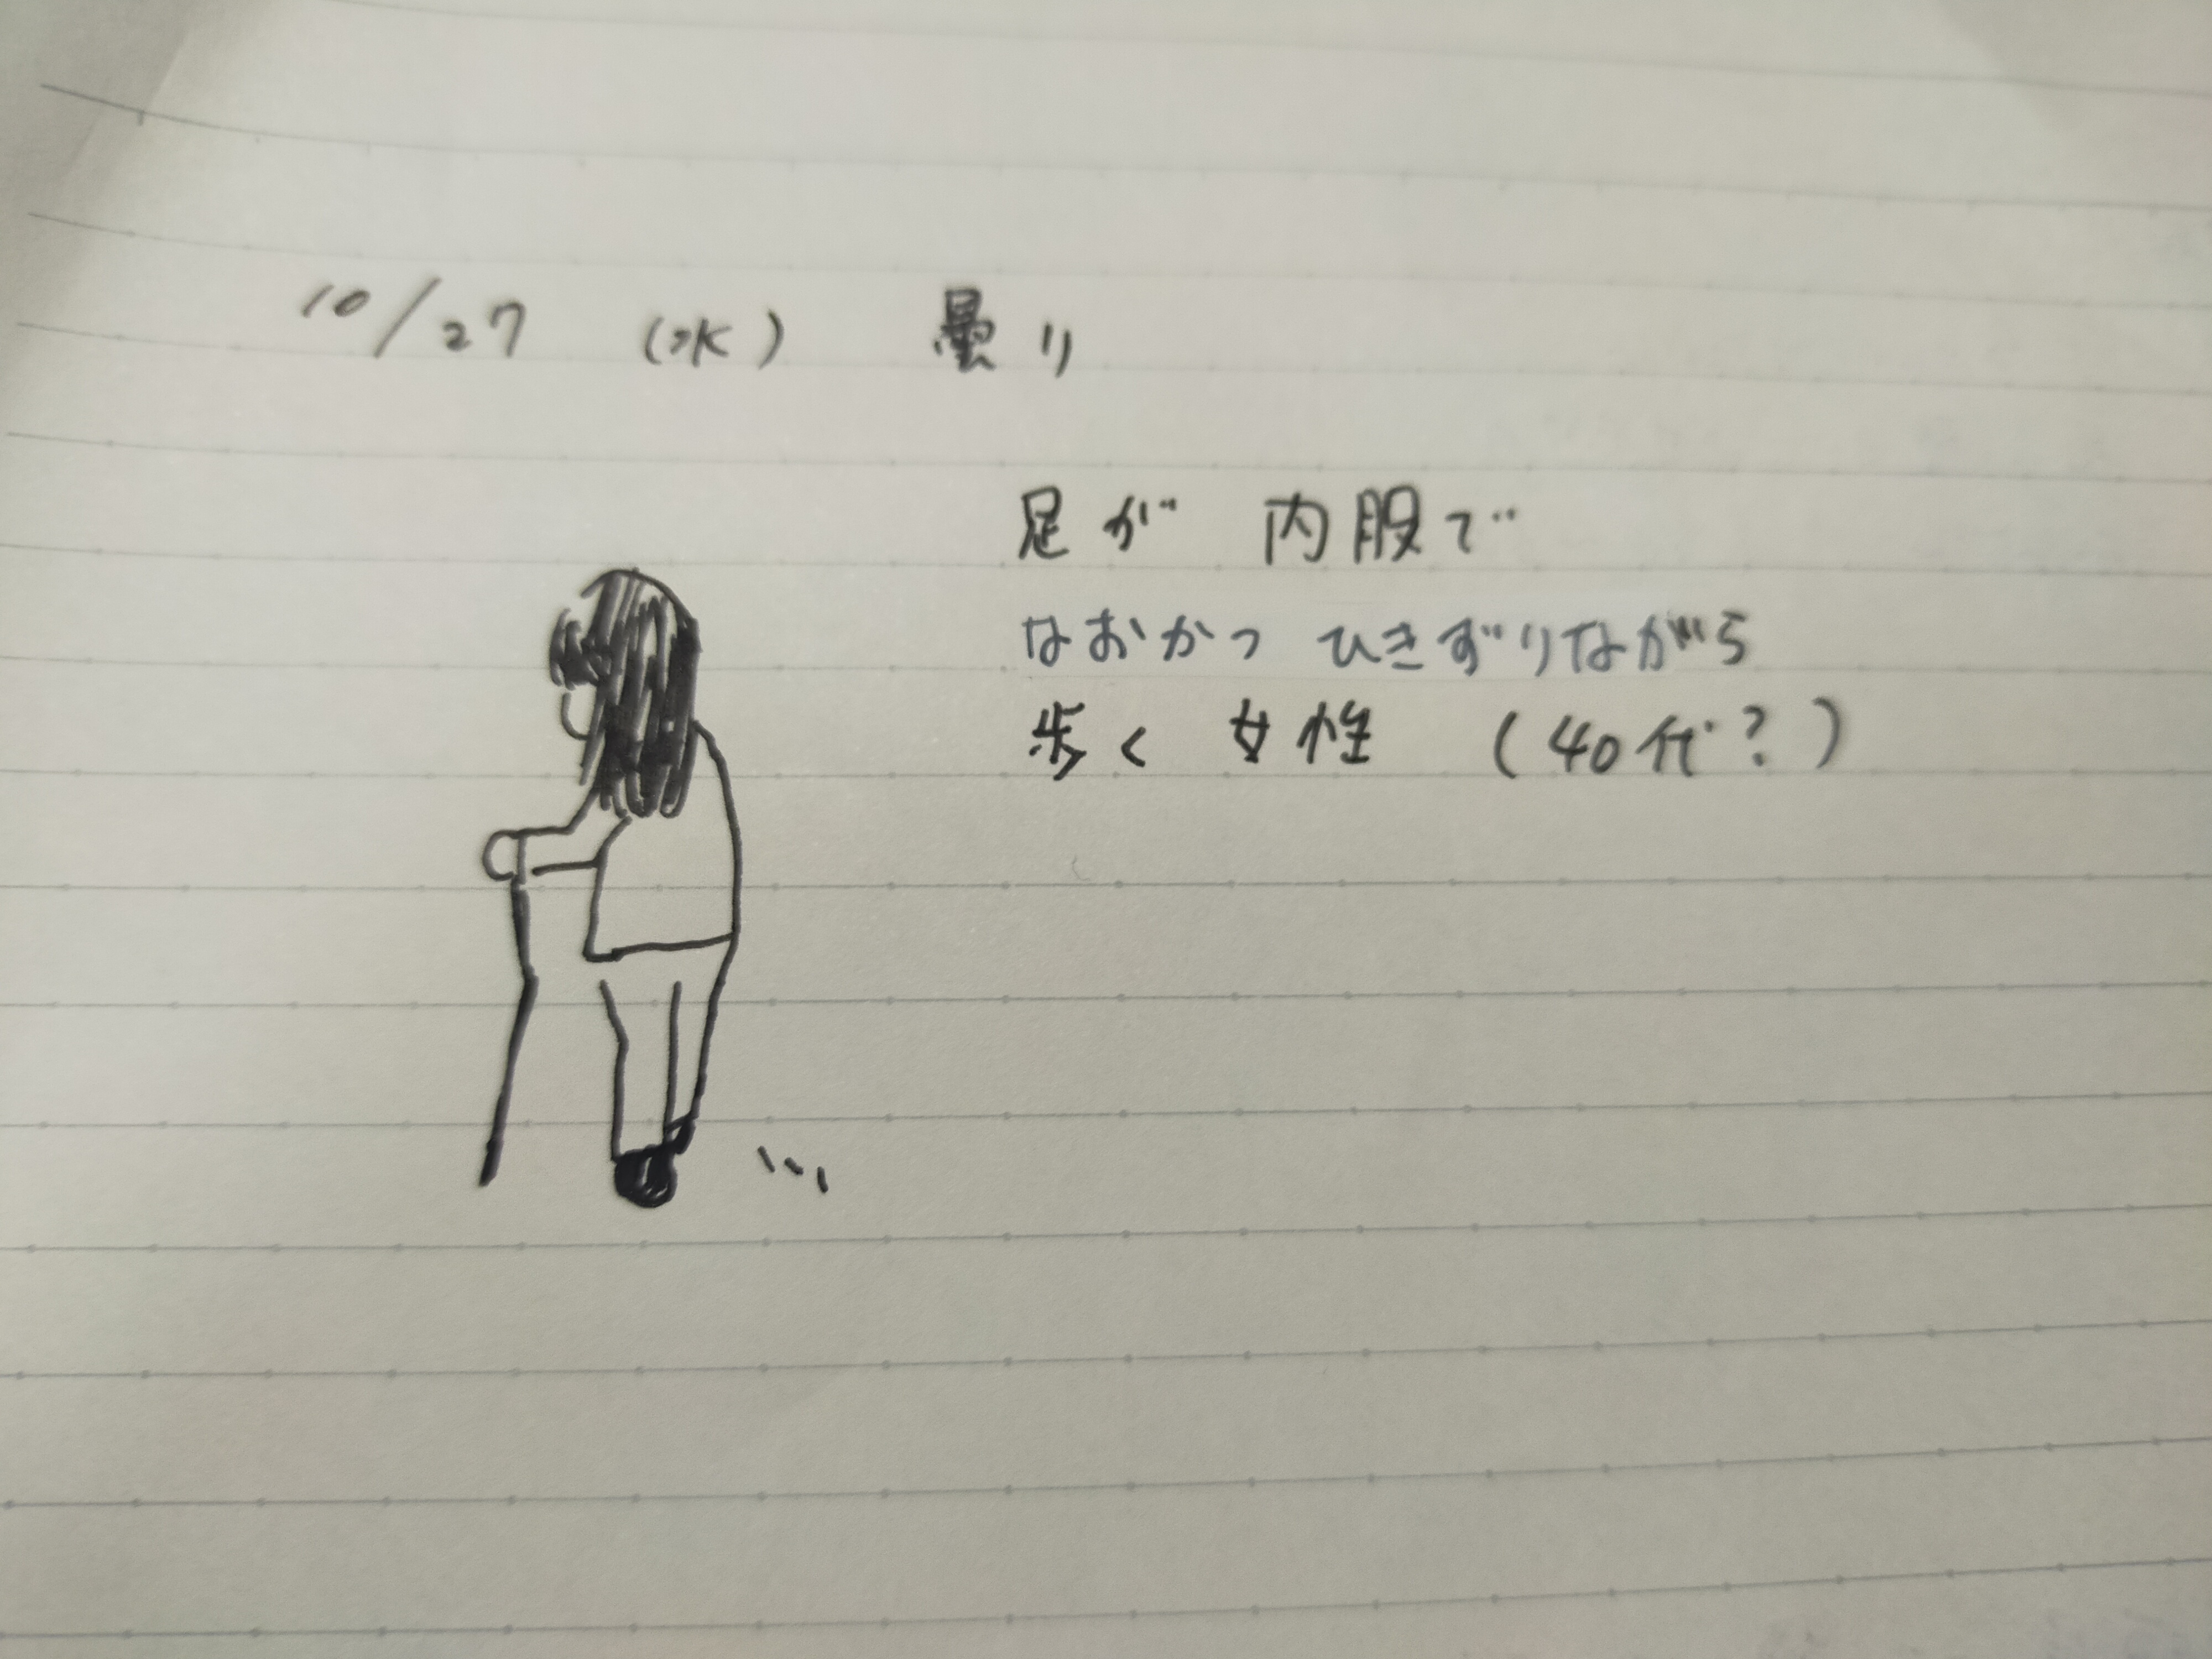 10/27 (水) 曇り
足が 内股で
なおかつ ひきずりながら
歩く 女性 (40代?)